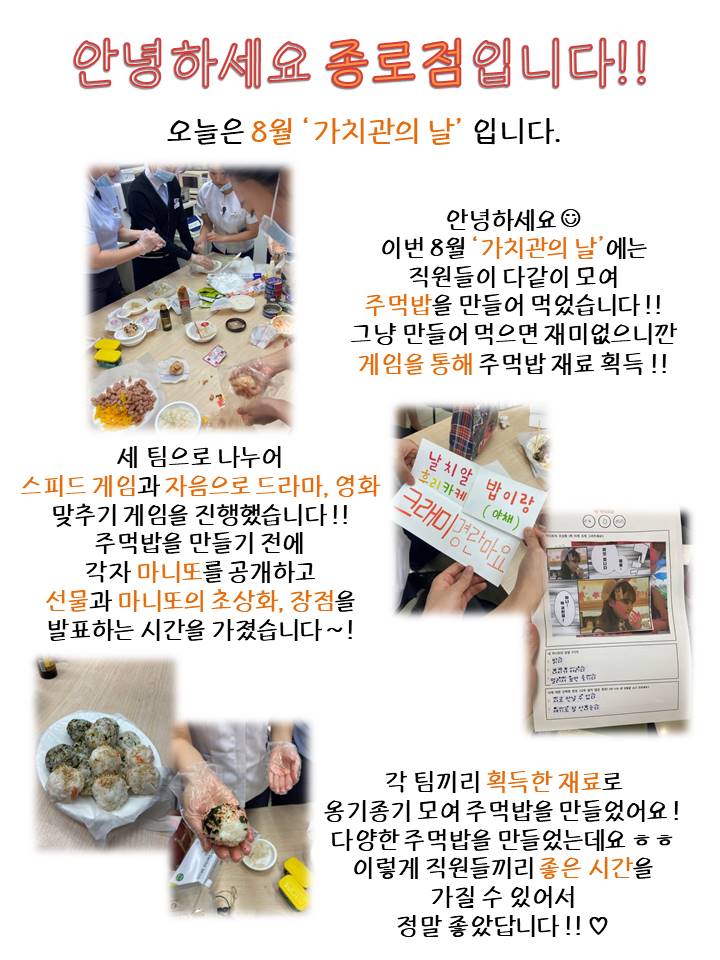 안녕하세요 종로점입니다!!
오늘은 8월 ‘가치관의 날’ 입니다.
안녕하세요☺
이번 8월 ‘가치관의 날’에는
직원들이 다같이 모여
주먹밥을 만들어 먹었습니다!!
그냥 만들어 먹으면 재미없으니깐
게임을 통해 주먹밥 재료 획득!!
세 팀으로 나누어
스피드 게임과 자음으로 드라마, 영화
맞추기 게임을 진행했습니다!!
주먹밥을 만들기 전에
각자 마니또를 공개하고
선물과 마니또의 초상화, 장점을
발표하는 시간을 가졌습니다~!
날치알
후리카케
밥이랑
(야채)
크래미
명란마요
각 팀끼리 획득한 재료로
옹기종기 모여 주먹밥을 만들었어요!
다양한 주먹밥을 만들었는데요 ㅎㅎ
이렇게 직원들끼리 좋은 시간을
가질 수 있어서
정말 좋았답니다!! ♡